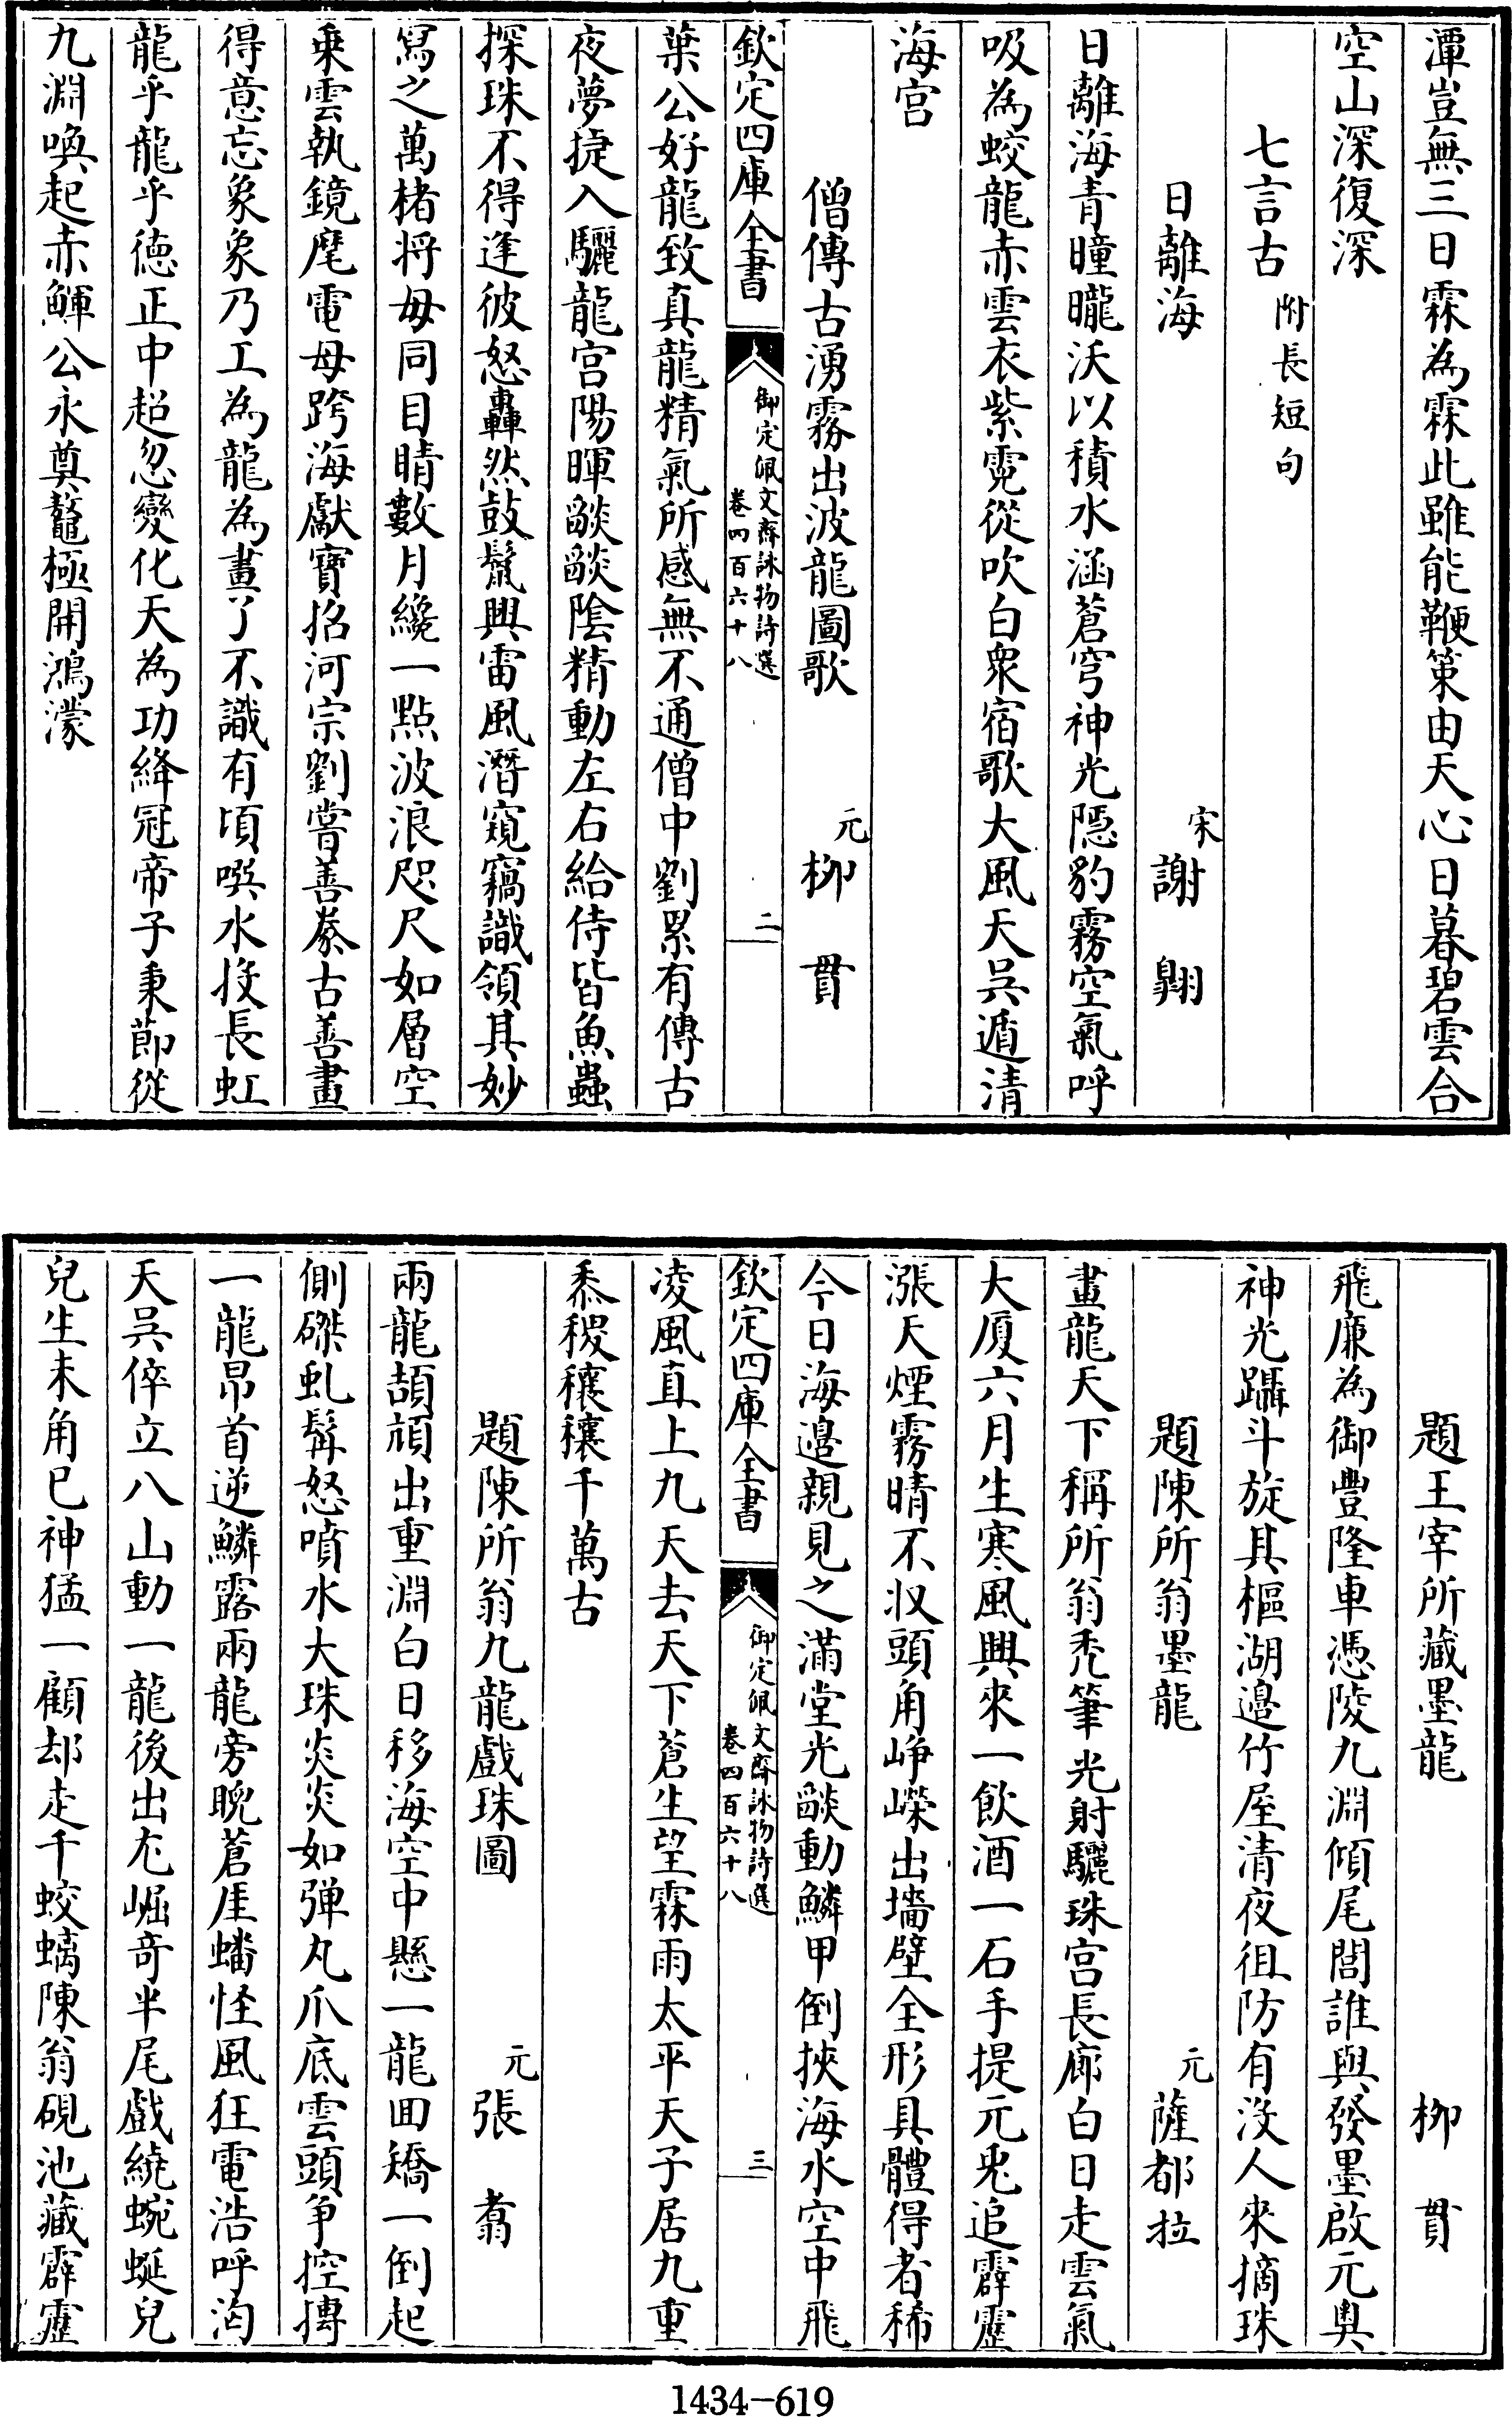 潭豈無三日霖為霖此雖能鞭策由天心日暮碧雲合
空山深復深
七言古附長短句
日離海 宋謝翱
日離海青曈曨沃以積水涵蒼穹神光隱豹霧空氣呼
吸為蛟龍赤雲衣紫霓從吹白衆宿歌大風天吳遁清
海宫
僧傳古湧霧出波龍圖歌 元柳貫
欽定四庫全書 御定佩文齋詠物詩選 卷四百六十八 二
葉公好龍致真龍精氣所感無不通僧中劉累有傳古
夜夢捷入驪龍宫陽暉燄燄陰精動左右給侍皆魚蟲
探珠不得逢彼怒轟然鼓鬛興雷風潛窺竊識領其妙
寫之萬楮将毋同目睛數月纔一點波浪咫尺如層空
乗雲執鏡麾電母跨海獻寶招河宗劉嘗善豢古善畫
得意忘象象乃工為龍為畫了不識有頃噀水投長虹
龍乎龍乎德正中超忽變化天為功絳冠帝子秉莭從
九淵喚起赤鯶公永奠鼇極開鴻濛
題王宰所藏墨龍 柳貫
飛廉為御豐隆車憑陵九淵傾尾閭誰與發墨啟元奥
神光躡斗旋其樞湖邉竹屋清夜徂防有没人來摘珠
題陳所翁墨龍 元薩都拉
畫龍天下稱所翁秃筆光射驪珠宫長廊白日走雲氣
大厦六月生寒風興來一飲酒一石手提元兎追霹靂
漲天煙霧晴不收頭角崢嶸出墻壁全形具體得者稀
今日海邉親見之滿堂光燄動鱗甲倒挾海水空中飛
欽定四庫全書 御定佩文齋詠物詩選 卷四百六十八 三
凌風直上九天去天下蒼生望霖雨太平天子居九重
黍稷穰穰千萬古
題陳所翁九龍戲珠圖 元張翥
兩龍頡頏出重淵白日移海空中懸一龍回矯一倒起
側磔虬髯怒噴水大珠炎炎如弹丸爪底雲頭争控摶
一龍昂首逆鱗露兩龍旁睨蒼厓蟠怪風狂電浩呼洶
天吳倅立八山動一龍後出尢崛竒半尾戲繞蜿蜒兒
兒生未角已神猛一顧却走千蛟螭陳翁硯池藏霹靂
1434-619